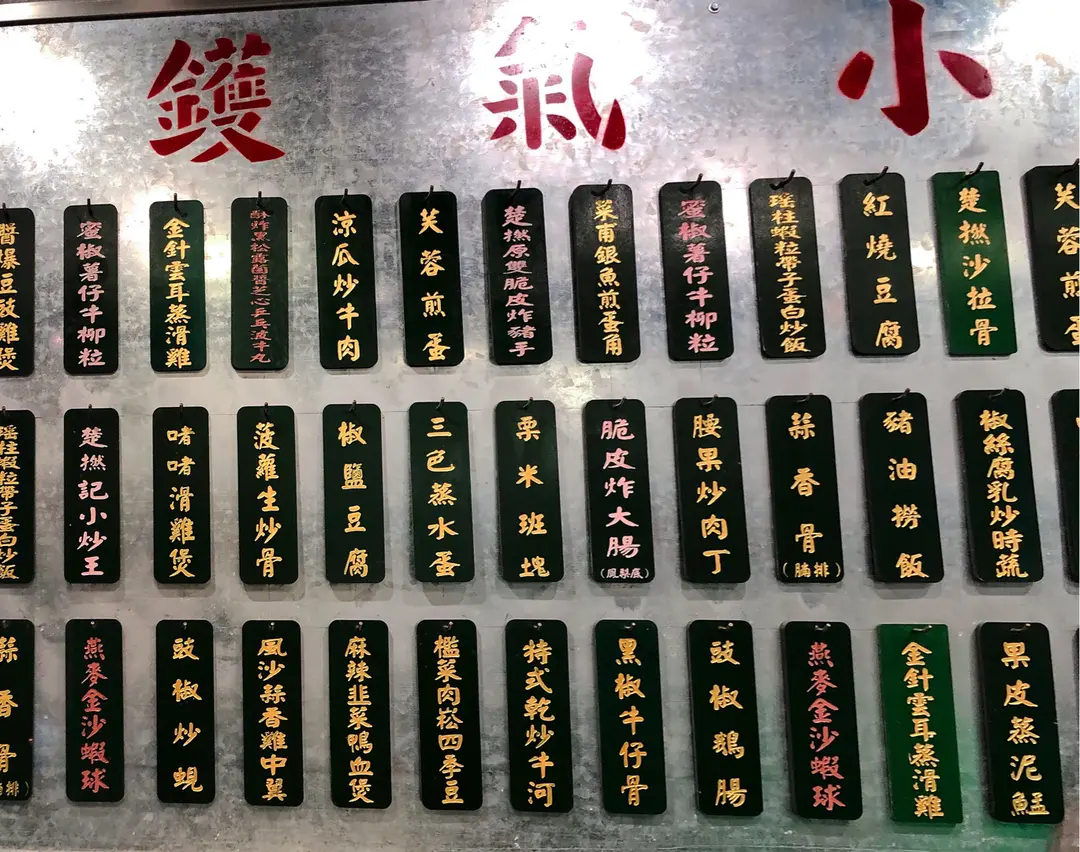 鑊氣小
醬爆豆豉雞煲
蜜椒薯仔牛柳粒
金針雲耳蒸滑雞
酥炸黑松露菌醬芝心乒乓波牛丸
涼瓜炒牛肉
芙蓉煎蛋
楚撚原雙脆皮炸豬手
菜甫銀魚煎蛋角
蜜椒薯仔牛柳粒
瑤柱蝦粒帶子蛋白炒飯
紅燒豆腐
楚撚沙拉骨
芙蓉煎蛋
瑤柱蝦粒帶子蛋白炒飯
楚撚記小炒王
啫啫滑雞煲
菠蘿生炒骨
椒鹽豆腐
三色蒸水蛋
粟米班塊
脆皮炸大腸
(鳳梨底)
腰果炒肉丁
蒜香骨
(腩排)
豬油撈飯
椒絲腐乳炒時蔬
蒜香骨
(腩排)
燕麥金沙蝦球
豉椒炒蜆
風沙蒜香雞中翼
麻辣韭菜鴨血煲
欖菜肉松四季豆
特式乾炒牛河
黑椒牛仔骨
豉椒鵝腸
燕麥金沙蝦球
金針雲耳蒸滑雞
果皮蒸泥鯭